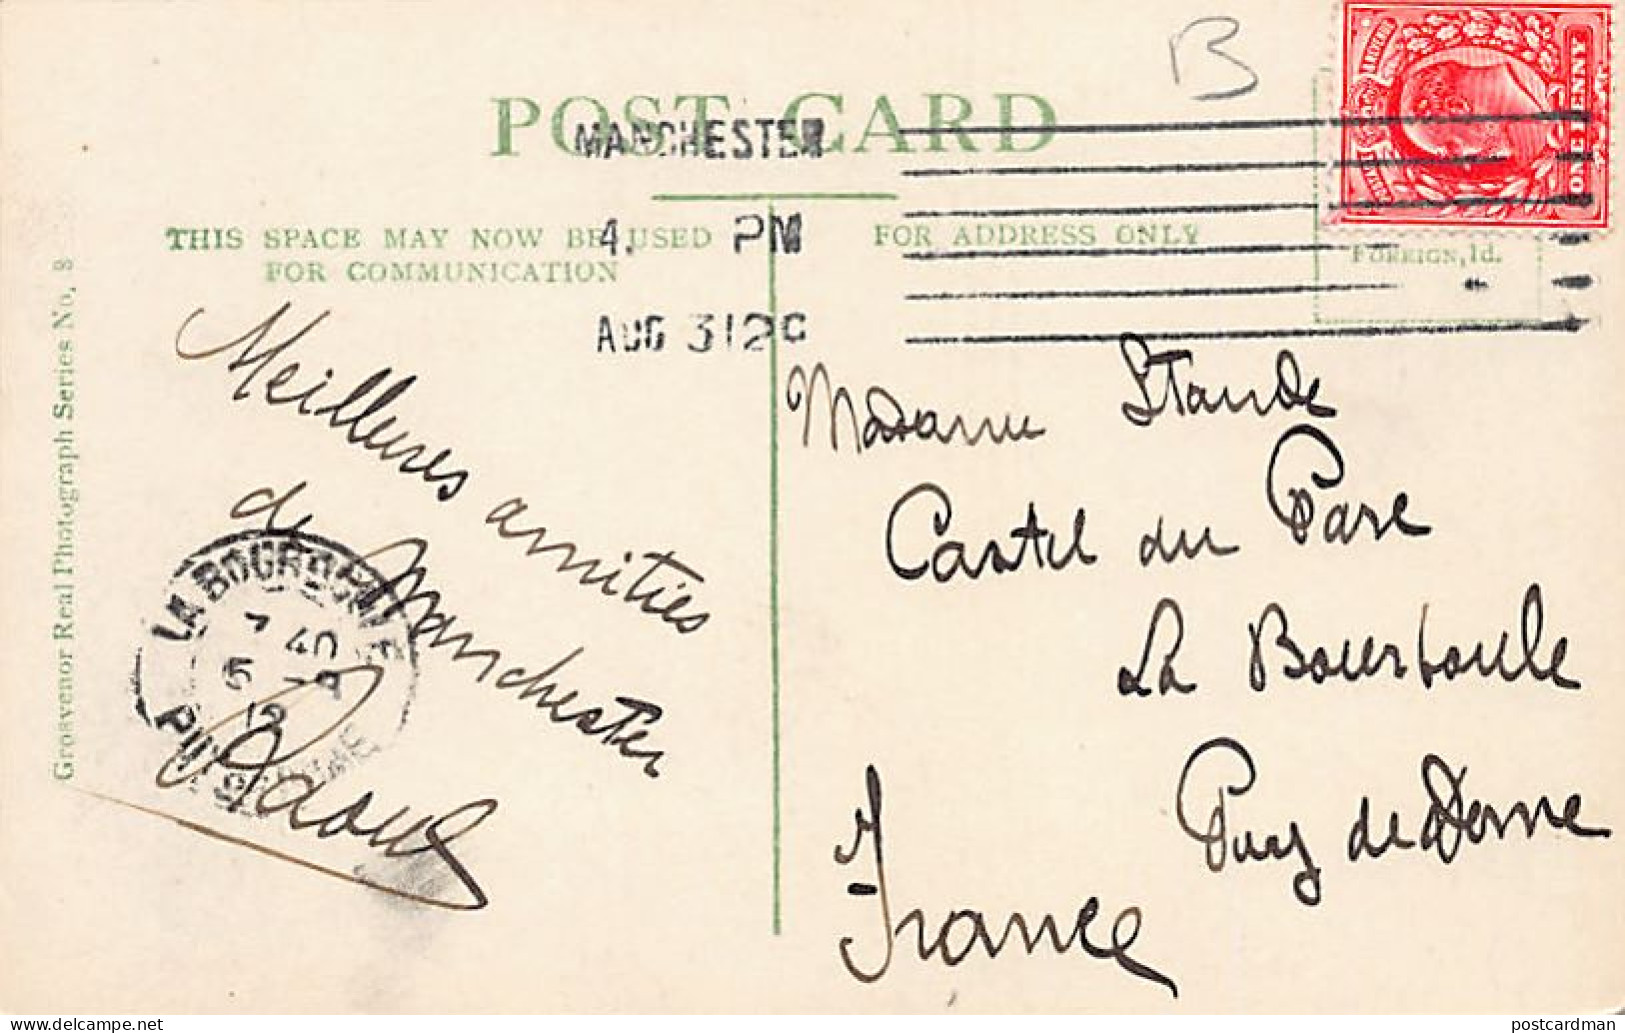 B
POST CARD
MANCHESTER
4. PM
AUG 31 2
THIS SPACE MAY NOW BE USED
FOR COMMUNICATION
FOR ADDRESS ONLY
FOREIGN, 1d.
ONE PENNY
Grosvenor Real Photograph Series No. 8
Meilleures amitiés
de Manchester
Raoul
LA BOURBOULE
7 40
5 -9
12
PUY DE DOME
Madame Staude
Castel du Parc
La Bourboule
Puy de Dome
France
postcardman